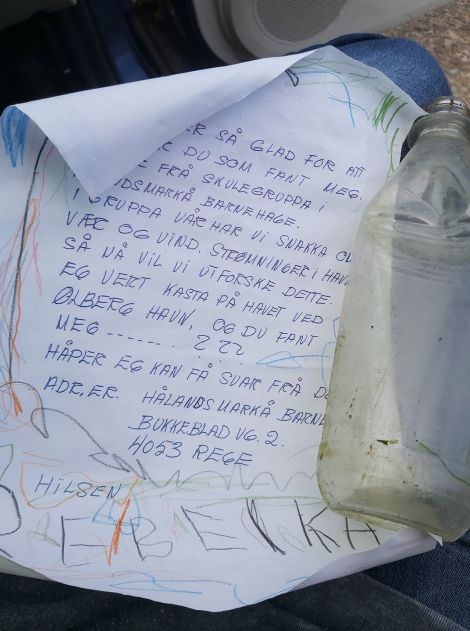 ER SÅ GLAD FOR ATT
DU SOM FANT MEG.
FRÅ SKULEGRUPPA I
NDSMARKÅ BARNEHAGE.
I GRUPPA VÅR HAR VI SNAKKA
VÆR OG VIND. STRØMNINGER I HAV
SÅ NÅ VIL VI UTFORSKE DETTE.
EG VERT KASTA PÅ HAVET VED
ØLBERG HAVN, OG DU FANT
MEG ------ ? ??
HÅPER EG KAN FÅ SVAR FRÅ D
ADR. ER. HÅLANDSMARKÅ BARNE
BUKKEBLAD VG. 2.
4053 REGE
HILSEN
REBEKKA